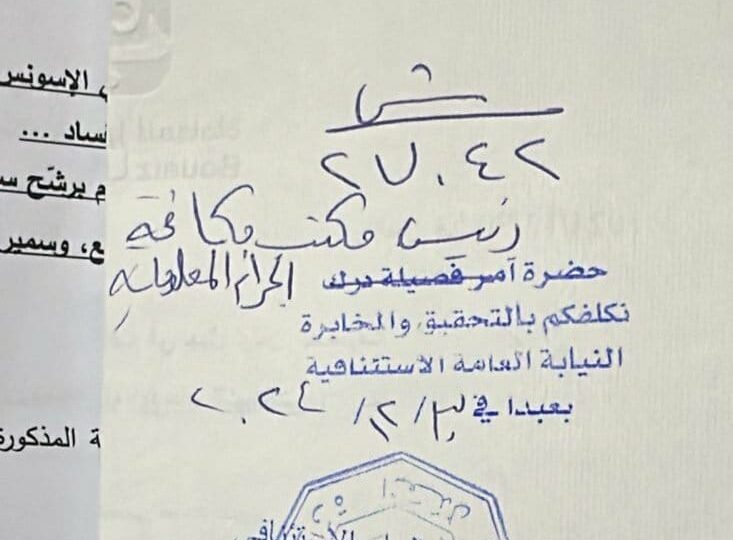 ش
٢٧٠٤٢
رئيس مكتب مكافحة
حضرة آمر فصيلة درك الجرائم المعلوماتية
نكلفكم بالتحقيق والمخابرة
النيابة العامة الاستئنافية
بعبدا في ٣/١٢/٢٠٢٤
الإسونس
ساد ...
م برشّح س
ع، وسمير
ة المذكورة